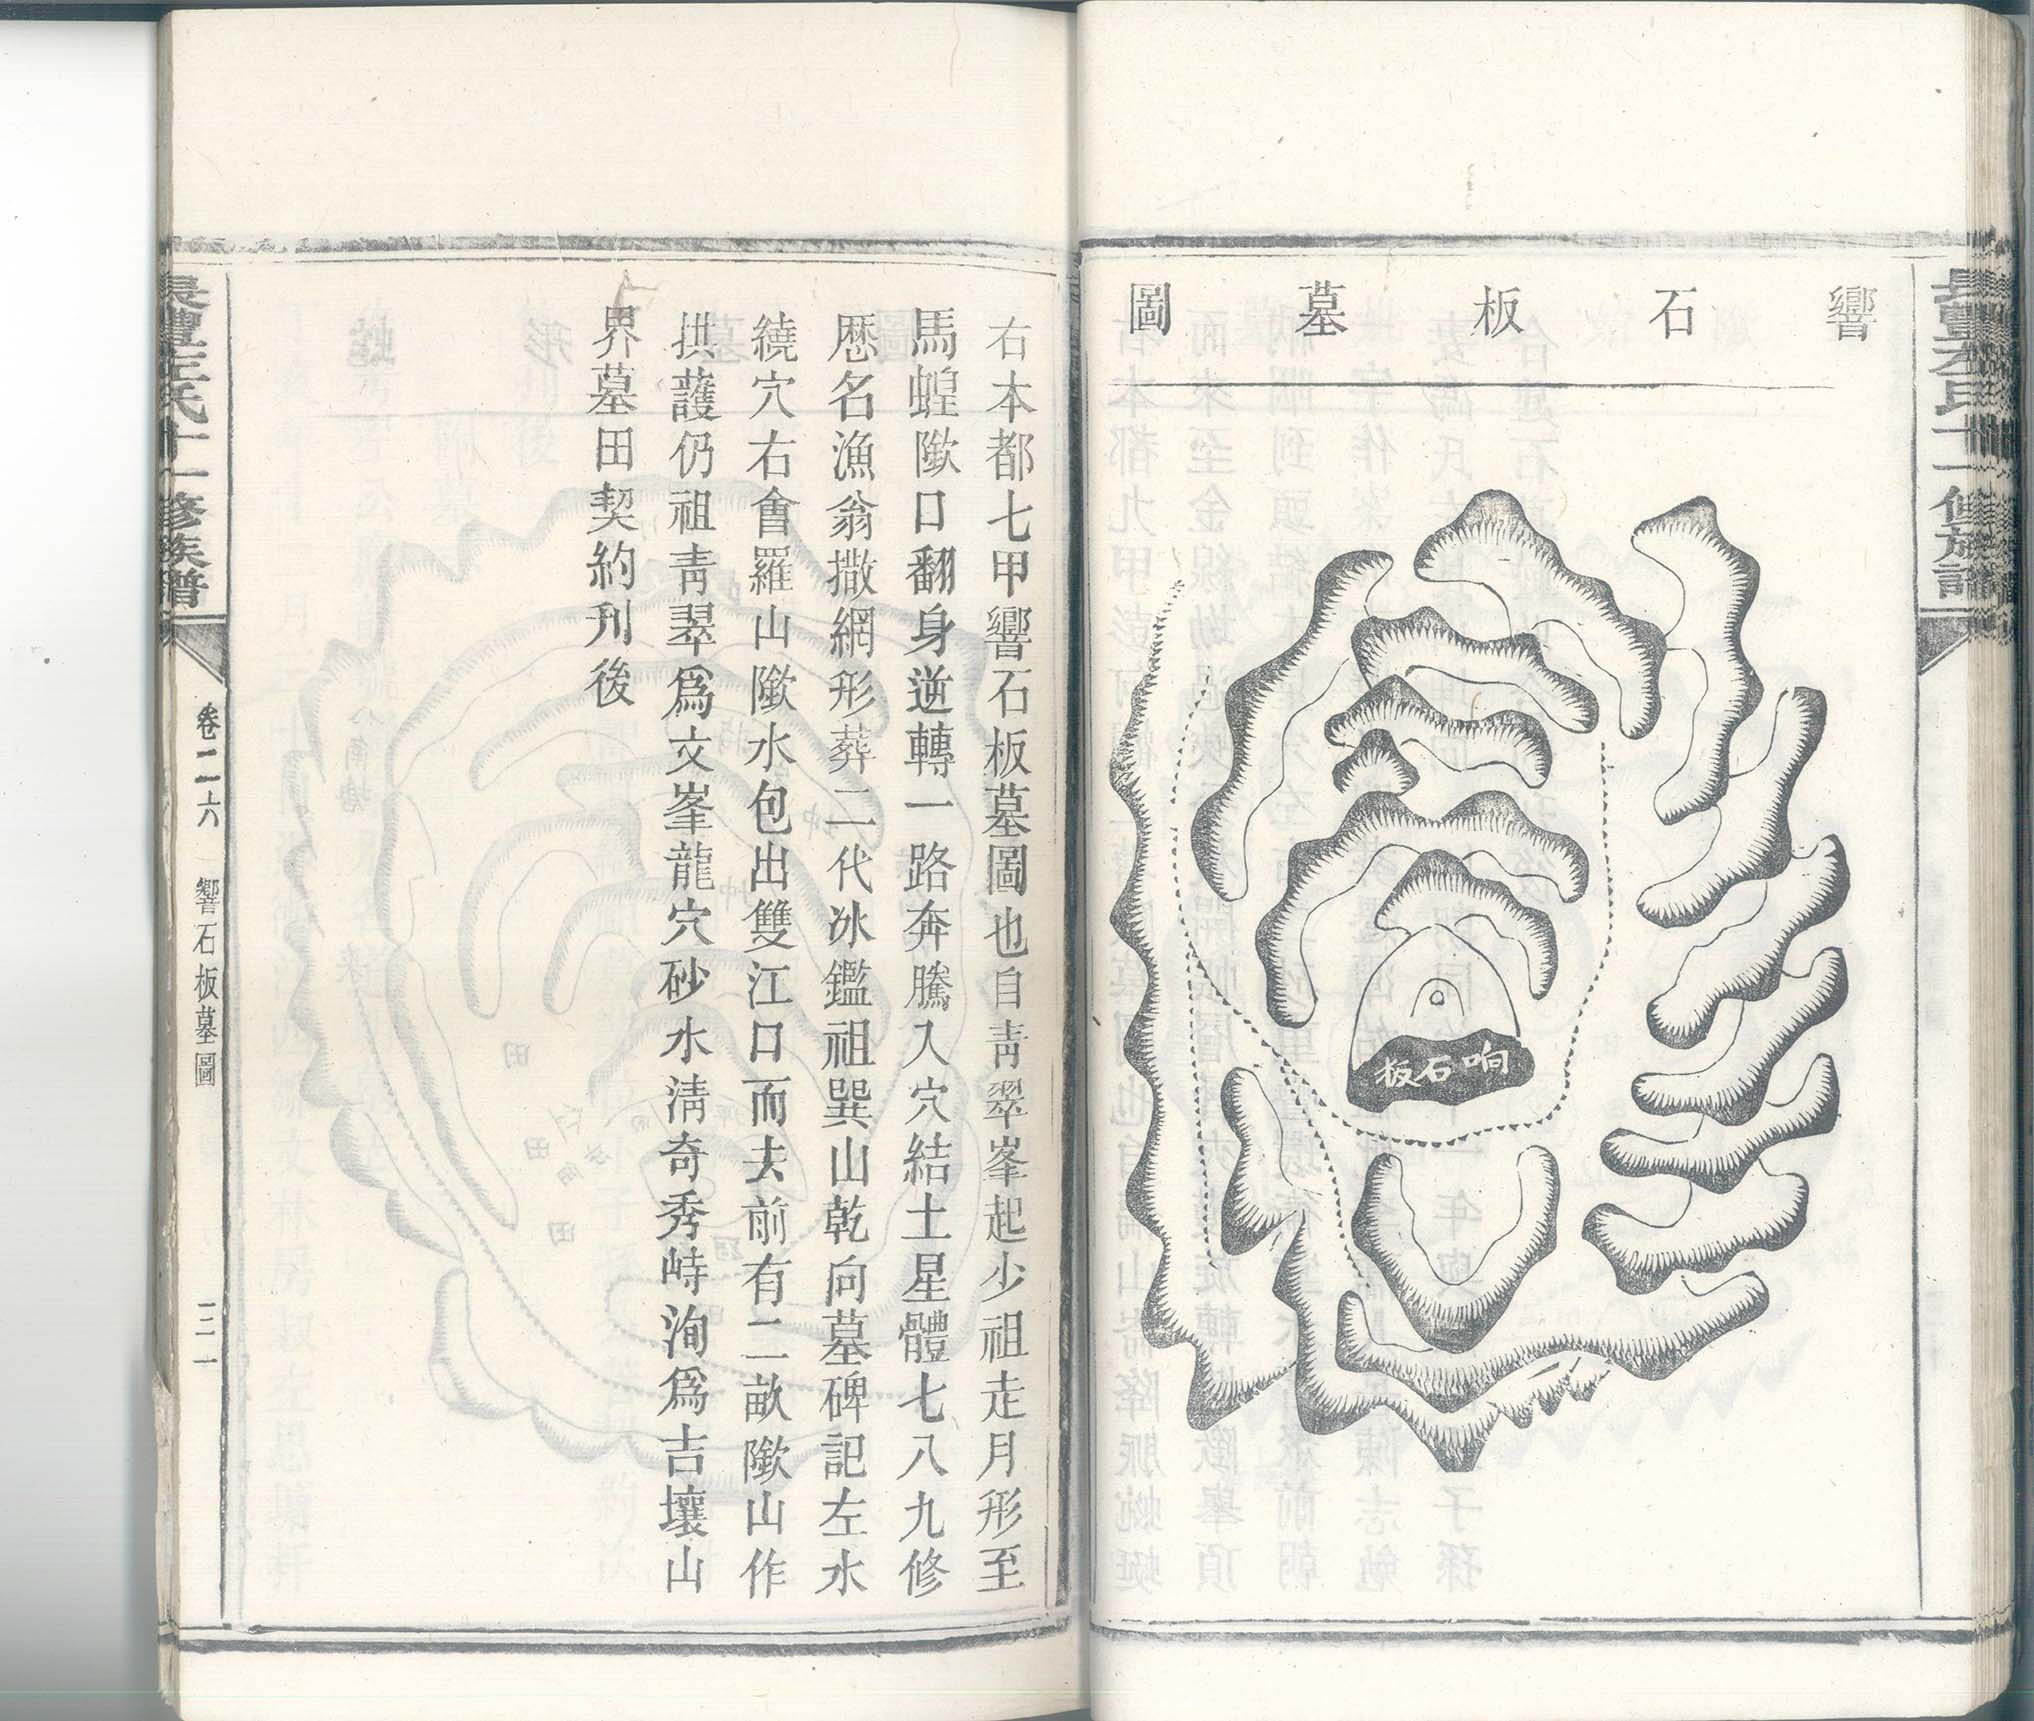 響石板墓圖
响石板
右本都七甲響石板墓圖也自青翠峯起少祖走月形至
馬蝗隞口翻身逆轉一路奔騰入穴結土星體七八九修
歷名漁翁撒網形葬二代冰鑑祖巽山乾向墓碑記左水
繞穴右會羅山隞水包出雙江口而去前有二畝隞山作
拱護仍祖青翠爲文峯龍穴砂水淸奇秀峙洵爲吉壤山
界墓田契約刋後
左氏十一修族譜
卷二六
響石板墓圖
三一